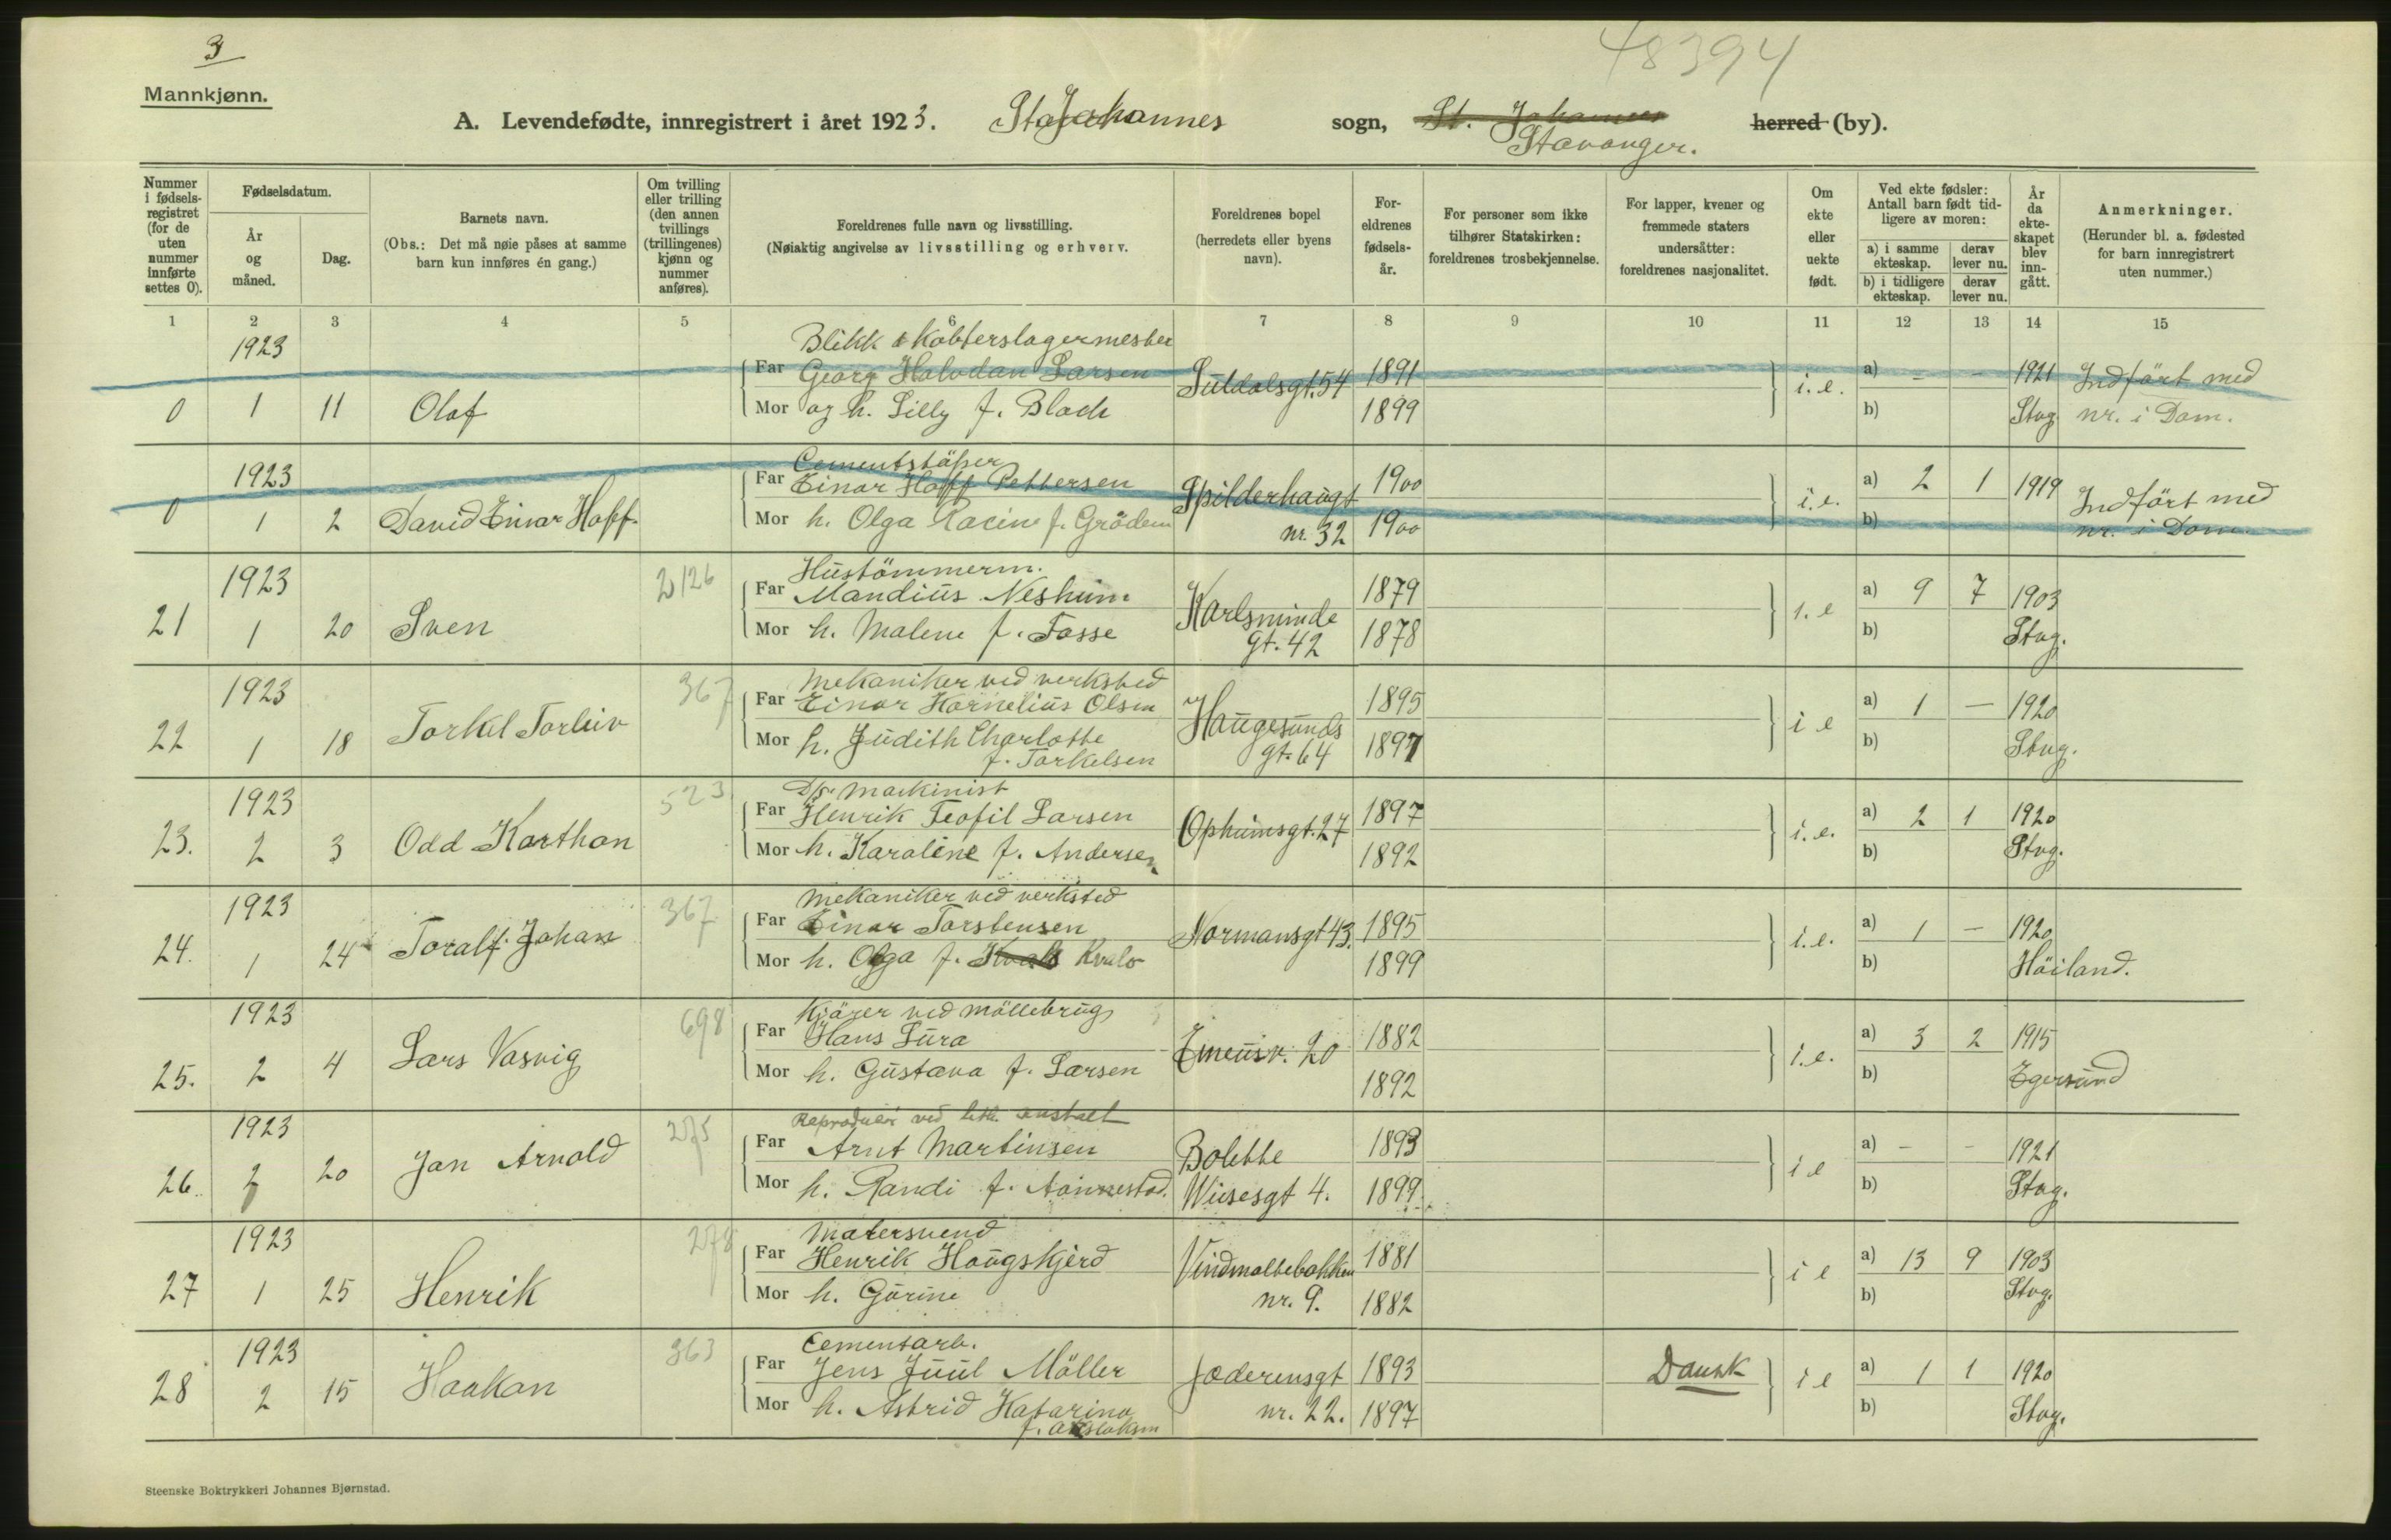 3
48394
Mannkjønn.
A. Levendefødte, innregistrert i året 1923. St. Johannes sogn, St. Johannes herred (by).
Stavanger.
Nummer i fødselsregistret (for de uten nummer innførte settes 0).
Fødselsdatum.
År og måned.
Dag.
Barnets navn.
(Obs.: Det må nøie påses at samme barn kun innføres én gang.)
Om tvilling eller trilling (den annen tvillings (trillingenes) kjønn og nummer anføres).
Foreldrenes fulle navn og livsstilling.
(Nøiaktig angivelse av livsstilling og erhverv.
Foreldrenes bopel (herredets eller byens navn).
Foreldrenes fødselsår.
For personer som ikke tilhører Statskirken: foreldrenes trosbekjennelse.
For lapper, kvener og fremmede staters undersåtter: foreldrenes nasjonalitet.
Om ekte eller uekte født.
Ved ekte fødsler: Antall barn født tidligere av moren:
a) i samme ekteskap. derav lever nu.
b) i tidligere ekteskap. derav lever nu.
År da ekteskapet blev inngått.
Anmerkninger.
(Herunder bl. a. fødested for barn innregistrert uten nummer.)
1 2 3 4 5 6 7 8 9 10 11 12 13 14 15
1923 Blikk & Kobberslagermester
Far Georg Halvdan Larsen Suldalsgt. 54 1891 i. e. a) - - 1921 Indført med
0 1 11 Olaf Mor og h. Lilly f. Block 1899 b) Stvg. nr. i Dom.
1923 Cementstøper
Far Einar Hoff Pettersen Spilderhaugt 1900 i. e. a) 2 1 1919 Indført med
0 1 2 David Einar Hoff Mor h. Olga Racine f. Grödem nr. 32 1900 b) nr. i Dom.
1923 2126 Hustömmerm.
Far Mandius Nesheim Karlsminde 1879 i. e a) 9 7 1903
21 1 20 Sven Mor h. Malene f. Fosse gt. 42 1878 b) Stvg.
1923 367 Mekaniker ved verksted
Far Einar Kornelius Olsen Haugesunds 1895 i e a) 1 — 1920
22 1 18 Torkel Torleiv Mor h. Judith Charlotte gt. 64 1897 b) Stvg.
f. Torkelsen
1923 523 D/s. Maskinist
Far Henrik Teofil Larsen Opheimsgt. 27 1897 i. e. a) 2 1 1920
23. 2 3 Odd Karthon Mor h. Karoline f. Andersen 1892 b) Stvg.
1923 367 Mekaniker ved verksted
Far Einar Torstensen Normansgt 43. 1895 i. e. a) 1 — 1920
24. 1 24 Toralf Johan Mor h. Olga f. Kvalv 1899 b) Höiland.
1923 698 Kjörer ved möllebrug
Far Hans Lura Emeusv. 20 1882 i. e. a) 3 2 1915
25. 2 4 Lars Vasvig Mor h. Gustava f. Larsen 1892 b) Egersund
1923 275 ved lith. anstalt
Far Arnt Martinsen Bolette 1893 i e a) - - 1921
26. 2 20 Jan Arnold Mor h. Randi f. Wiesesgt 4. 1899 b) Stvg.
1923 278 Malersvend
Far Henrik Haugskjerd Vindmøllebakken 1881 i e a) 13 9 1903
27 1 25 Henrik Mor h. Gurine nr. 9. 1882 b) Stvg.
1923 363 Cementarb.
Far Jens Juul Möller Jæderensgt 1893 Dansk i e a) 1 1 1920
28 2 15 Haakon Mor h. Astrid Katarina nr. 22. 1897 b) Stvg.
f. Aslaksen
Steenske Boktrykkeri Johannes Bjørnstad.